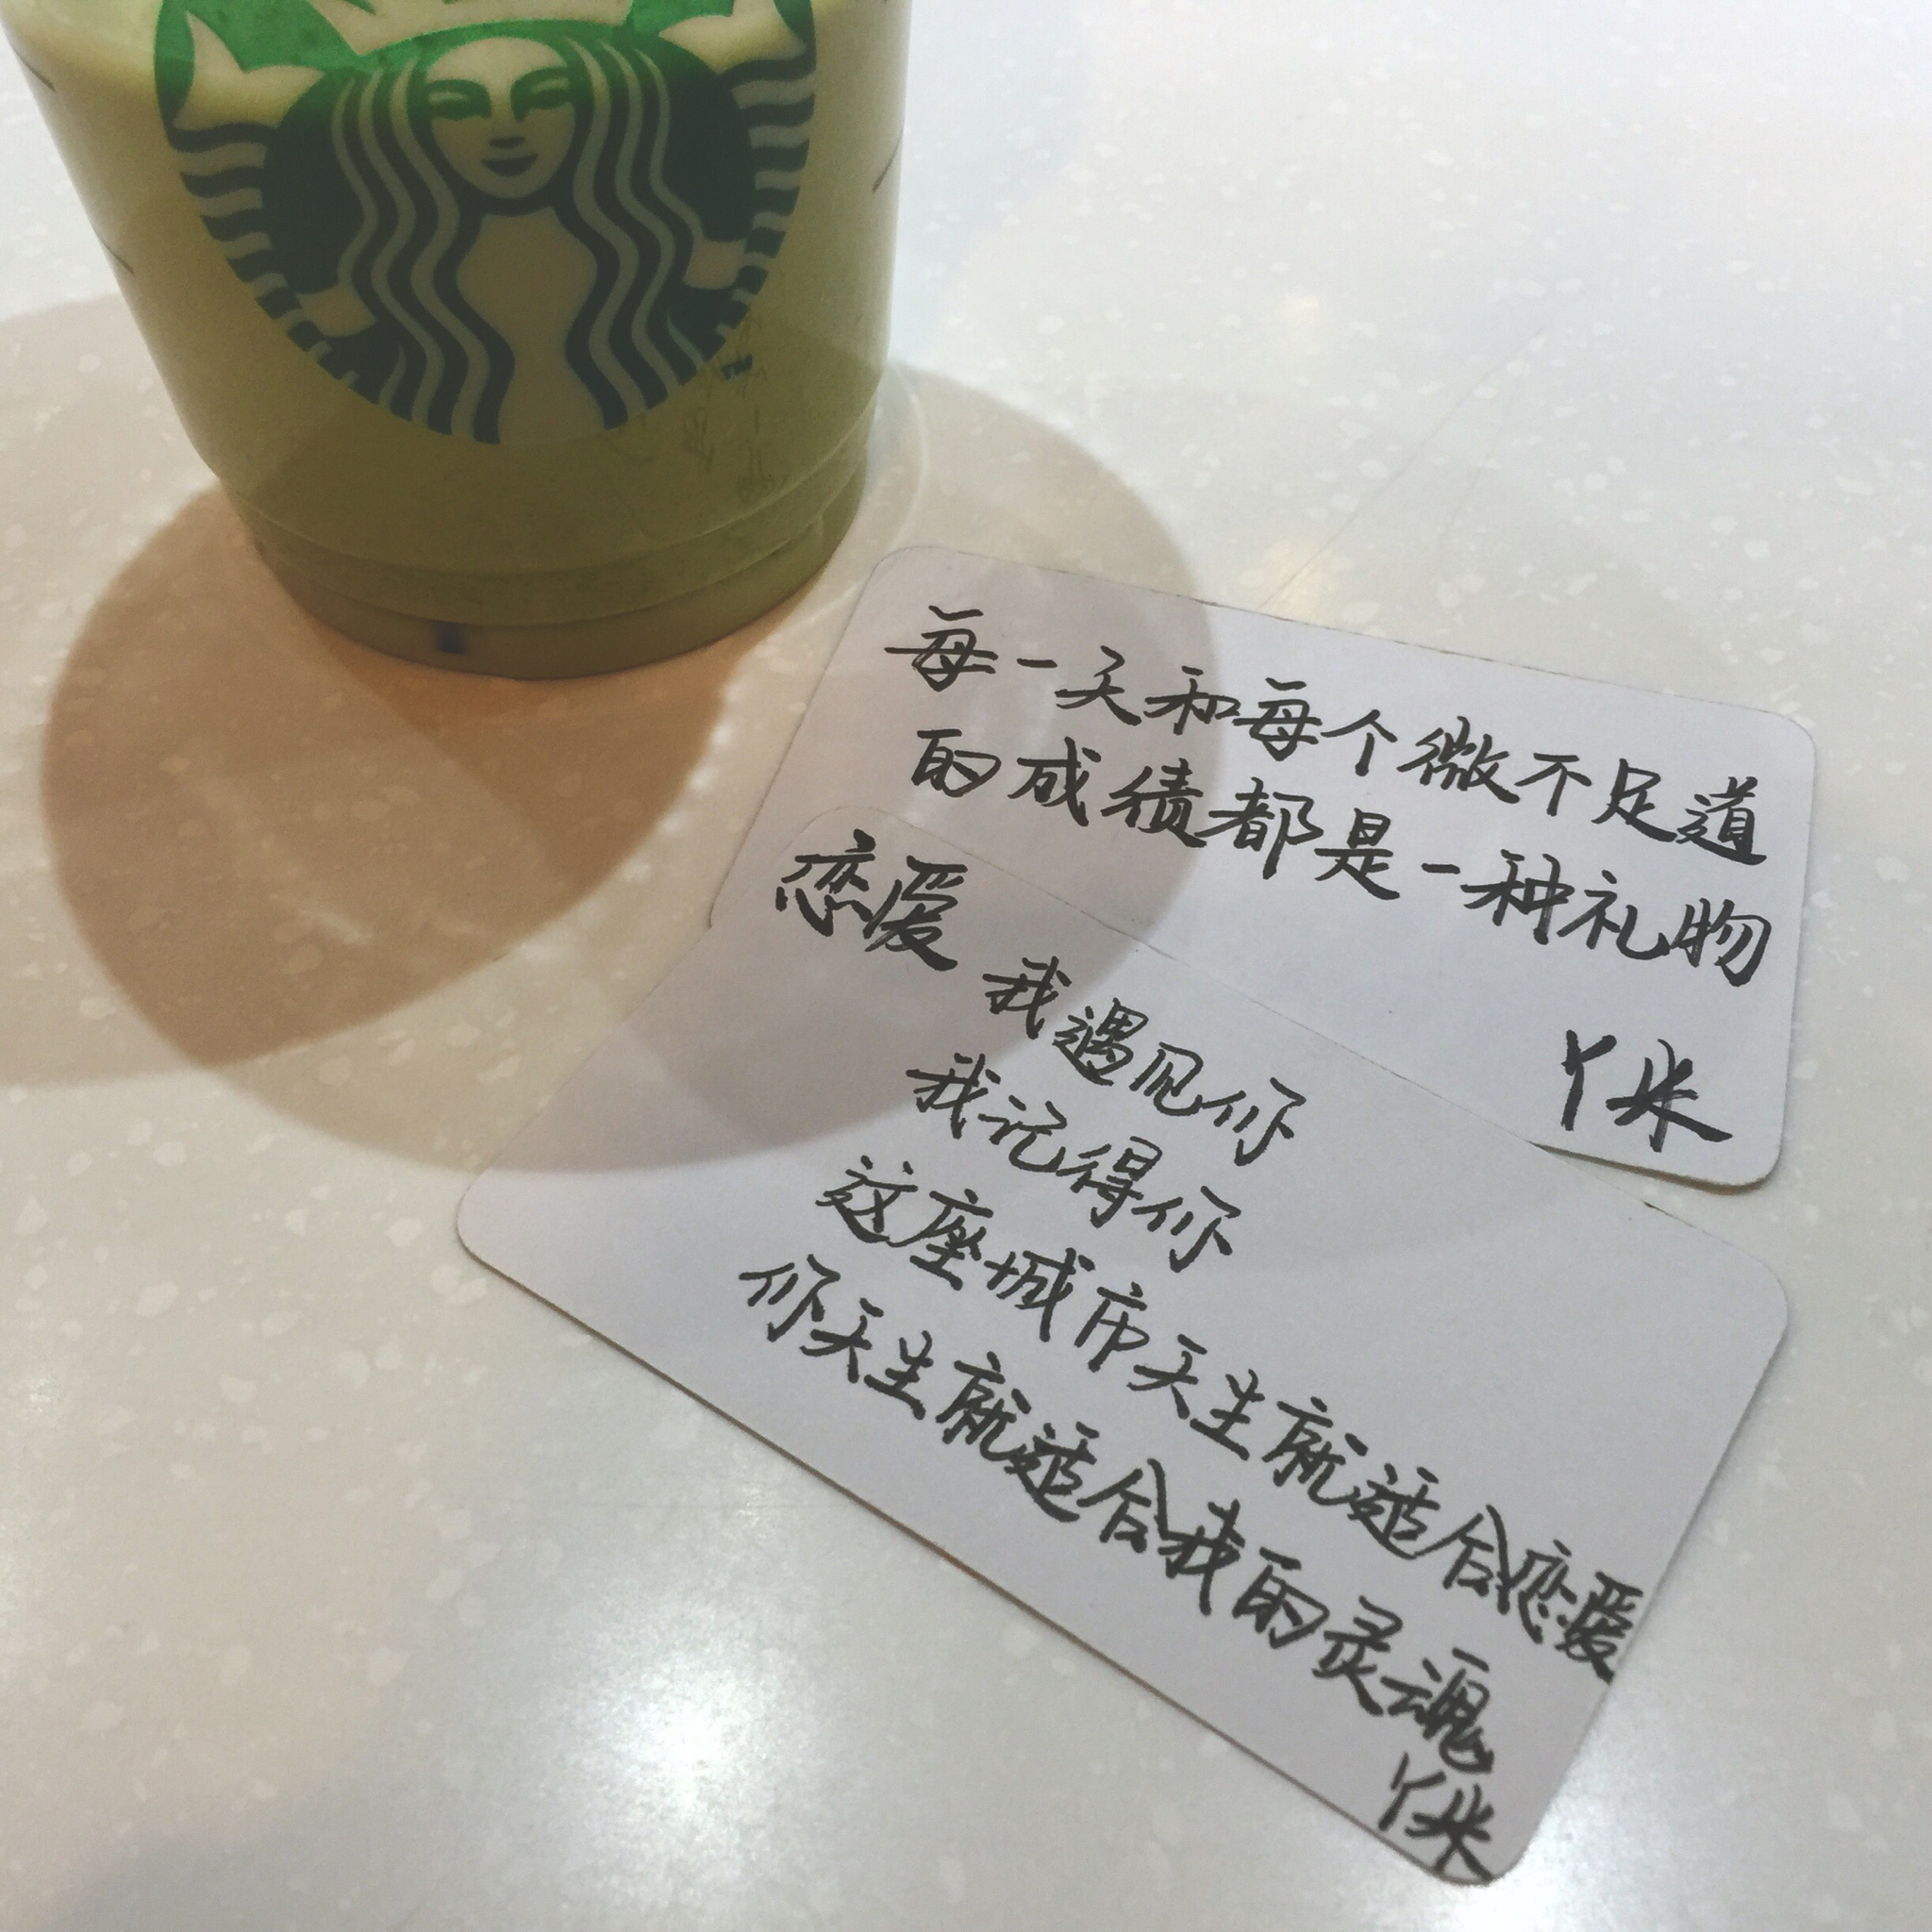 每一天和每个微不足道
的成绩都是一种礼物
丫米
恋爱
我遇见你
我记得你
这座城市天生就适合恋爱
你天生就适合我的灵魂
丫米